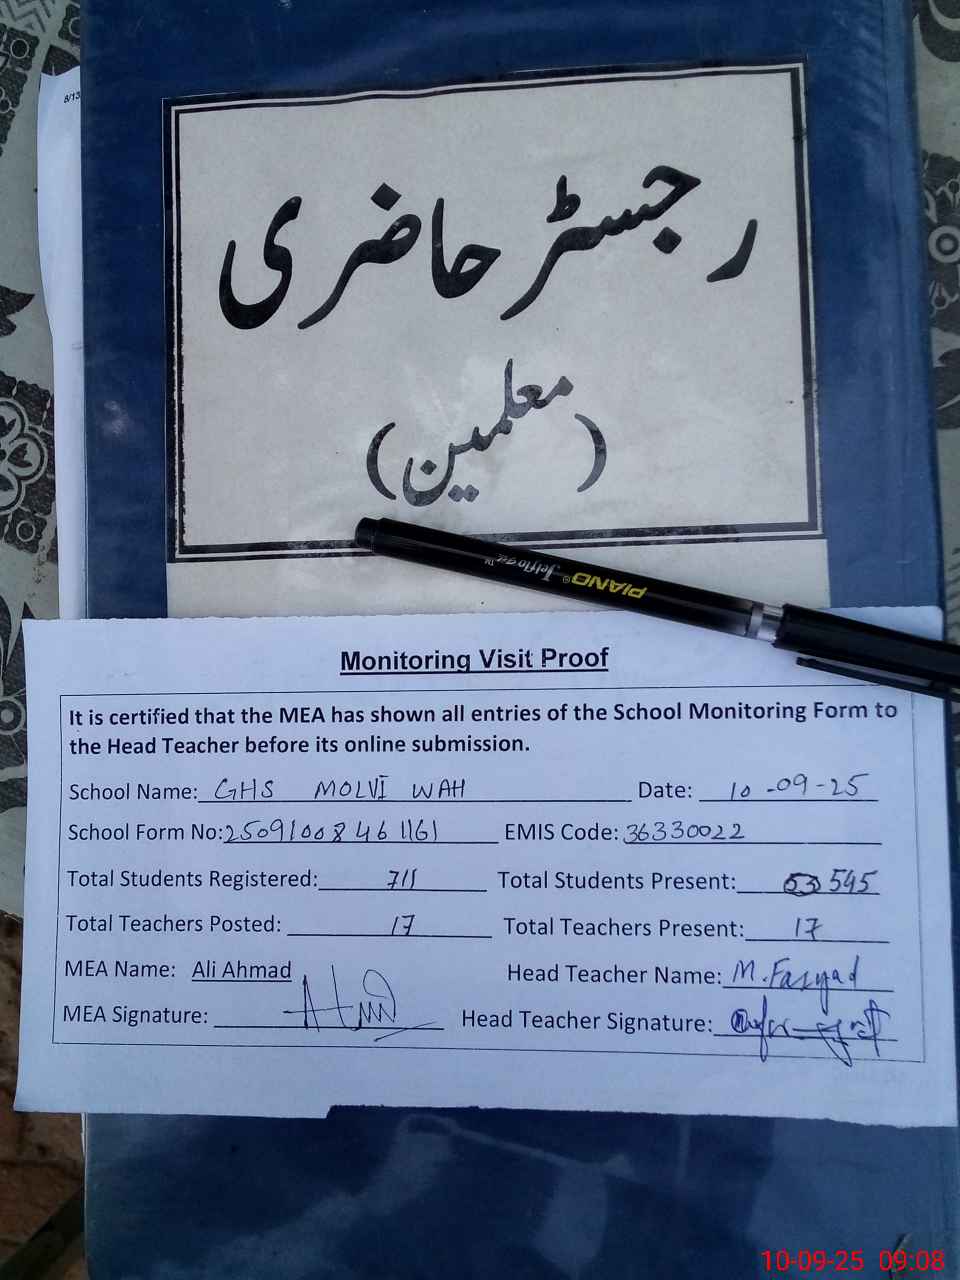 8/13
رجسٹر حاضری
(معلمین)
PIANO® Jelflogel™
Monitoring Visit Proof
It is certified that the MEA has shown all entries of the School Monitoring Form to
the Head Teacher before its online submission.
School Name: GHS MOLVI WAH Date: 10-09-25
School Form No: 2509100846 1161 EMIS Code: 36330022
Total Students Registered: 711 Total Students Present: 595
Total Teachers Posted: 17 Total Teachers Present: 17
MEA Name: Ali Ahmad Head Teacher Name: M. Fasyad
MEA Signature: Head Teacher Signature:
10-09-25 09:08